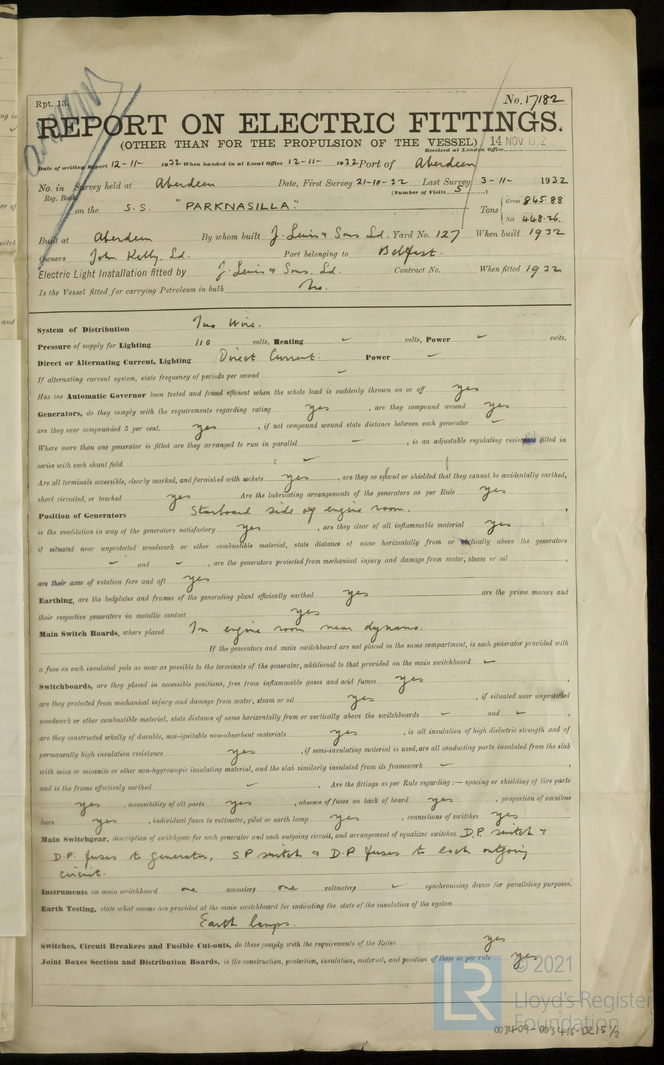 Rpt. 13.
No. 17182
REPORT ON ELECTRIC FITTINGS.
(OTHER THAN FOR THE PROPULSION OF THE VESSEL)
14 NOV 1932
Received at London Office
Date of writing Report 12-11- 1932 When handed in at Local Office 12-11- 1932 Port of Aberdeen
No. in Survey held at Aberdeen Date, First Survey 21-10-32 Last Survey 3-11- 1932
Reg. Book. (Number of Visits 5)
on the S.S. "PARKNASILLA." Tons { Gross 845.88
Net 448.26.
Built at Aberdeen By whom built J. Lewis & Sons Ld. Yard No. 127 When built 1932
Owners John Kelly, Ld. Port belonging to Belfast.
Electric Light Installation fitted by J. Lewis & Sons. Ld. Contract No. When fitted 1932
Is the Vessel fitted for carrying Petroleum in bulk No.
System of Distribution Two Wire.
Pressure of supply for Lighting 110 volts, Heating ✓ volts, Power ✓ volts.
Direct or Alternating Current, Lighting Direct Current. Power ✓
If alternating current system, state frequency of periods per second ✓
Has the Automatic Governor been tested and found efficient when the whole load is suddenly thrown on or off yes
Generators, do they comply with the requirements regarding rating yes, are they compound wound yes
are they over compounded 5 per cent. yes, if not compound wound state distance between each generator ✓
Where more than one generator is fitted are they arranged to run in parallel ✓, is an adjustable regulating resistance fitted in
series with each shunt field ✓
Are all terminals accessible, clearly marked, and furnished with sockets yes, are they so spaced or shielded that they cannot be accidentally earthed,
short circuited, or touched yes Are the lubricating arrangements of the generators as per Rule yes
Position of Generators Starboard side of engine room.,
is the ventilation in way of the generators satisfactory yes, are they clear of all inflammable material yes
if situated near unprotected woodwork or other combustible material, state distance of same horizontally from or vertically above the generators
✓ and ✓, are the generators protected from mechanical injury and damage from water, steam or oil,
are their axes of rotation fore and aft yes
Earthing, are the bedplates and frames of the generating plant efficiently earthed yes are the prime movers and
their respective generators in metallic contact yes
Main Switch Boards, where placed In engine room near dynamo.
If the generators and main switchboard are not placed in the same compartment, is each generator provided with
a fuse on each insulated pole as near as possible to the terminals of the generator, additional to that provided on the main switchboard ✓
Switchboards, are they placed in accessible positions, free from inflammable gases and acid fumes yes,
are they protected from mechanical injury and damage from water, steam or oil yes, if situated near unprotected
woodwork or other combustible material, state distance of same horizontally from or vertically above the switchboards ✓ and ✓,
are they constructed wholly of durable, non-ignitable non-absorbent materials yes, is all insulation of high dielectric strength and of
permanently high insulation resistance yes, if semi-insulating material is used, are all conducting parts insulated from the slab
with mica or micanite or other non-hygroscopic insulating material, and the slab similarly insulated from its framework ✓,
and is the frame effectively earthed ✓. Are the fittings as per Rule regarding :— spacing or shielding of live parts
yes, accessibility of all parts yes, absence of fuses on back of board yes, proportion of omnibus
bars yes, individual fuses to voltmeter, pilot or earth lamp yes, connections of switches yes
Main Switchgear, description of switchgear for each generator and each outgoing circuit, and arrangement of equalizer switches D.P. switch &
D.P. fuses to generator, S P switch & D.P fuses to each outgoing
circuit.
Instruments on main switchboard one ammeters one voltmeters ✓ synchronising device for paralleling purposes.
Earth Testing, state what means are provided at the main switchboard for indicating the state of the insulation of the system
Earth lamps.
Switches, Circuit Breakers and Fusible Cut-outs, do these comply with the requirements of the Rules yes
Joint Boxes Section and Distribution Boards, is the construction, protection, insulation, material, and position of these as per rule yes
LR
© 2021
Lloyd's Register
Foundation
003409-003416-0215 1/2